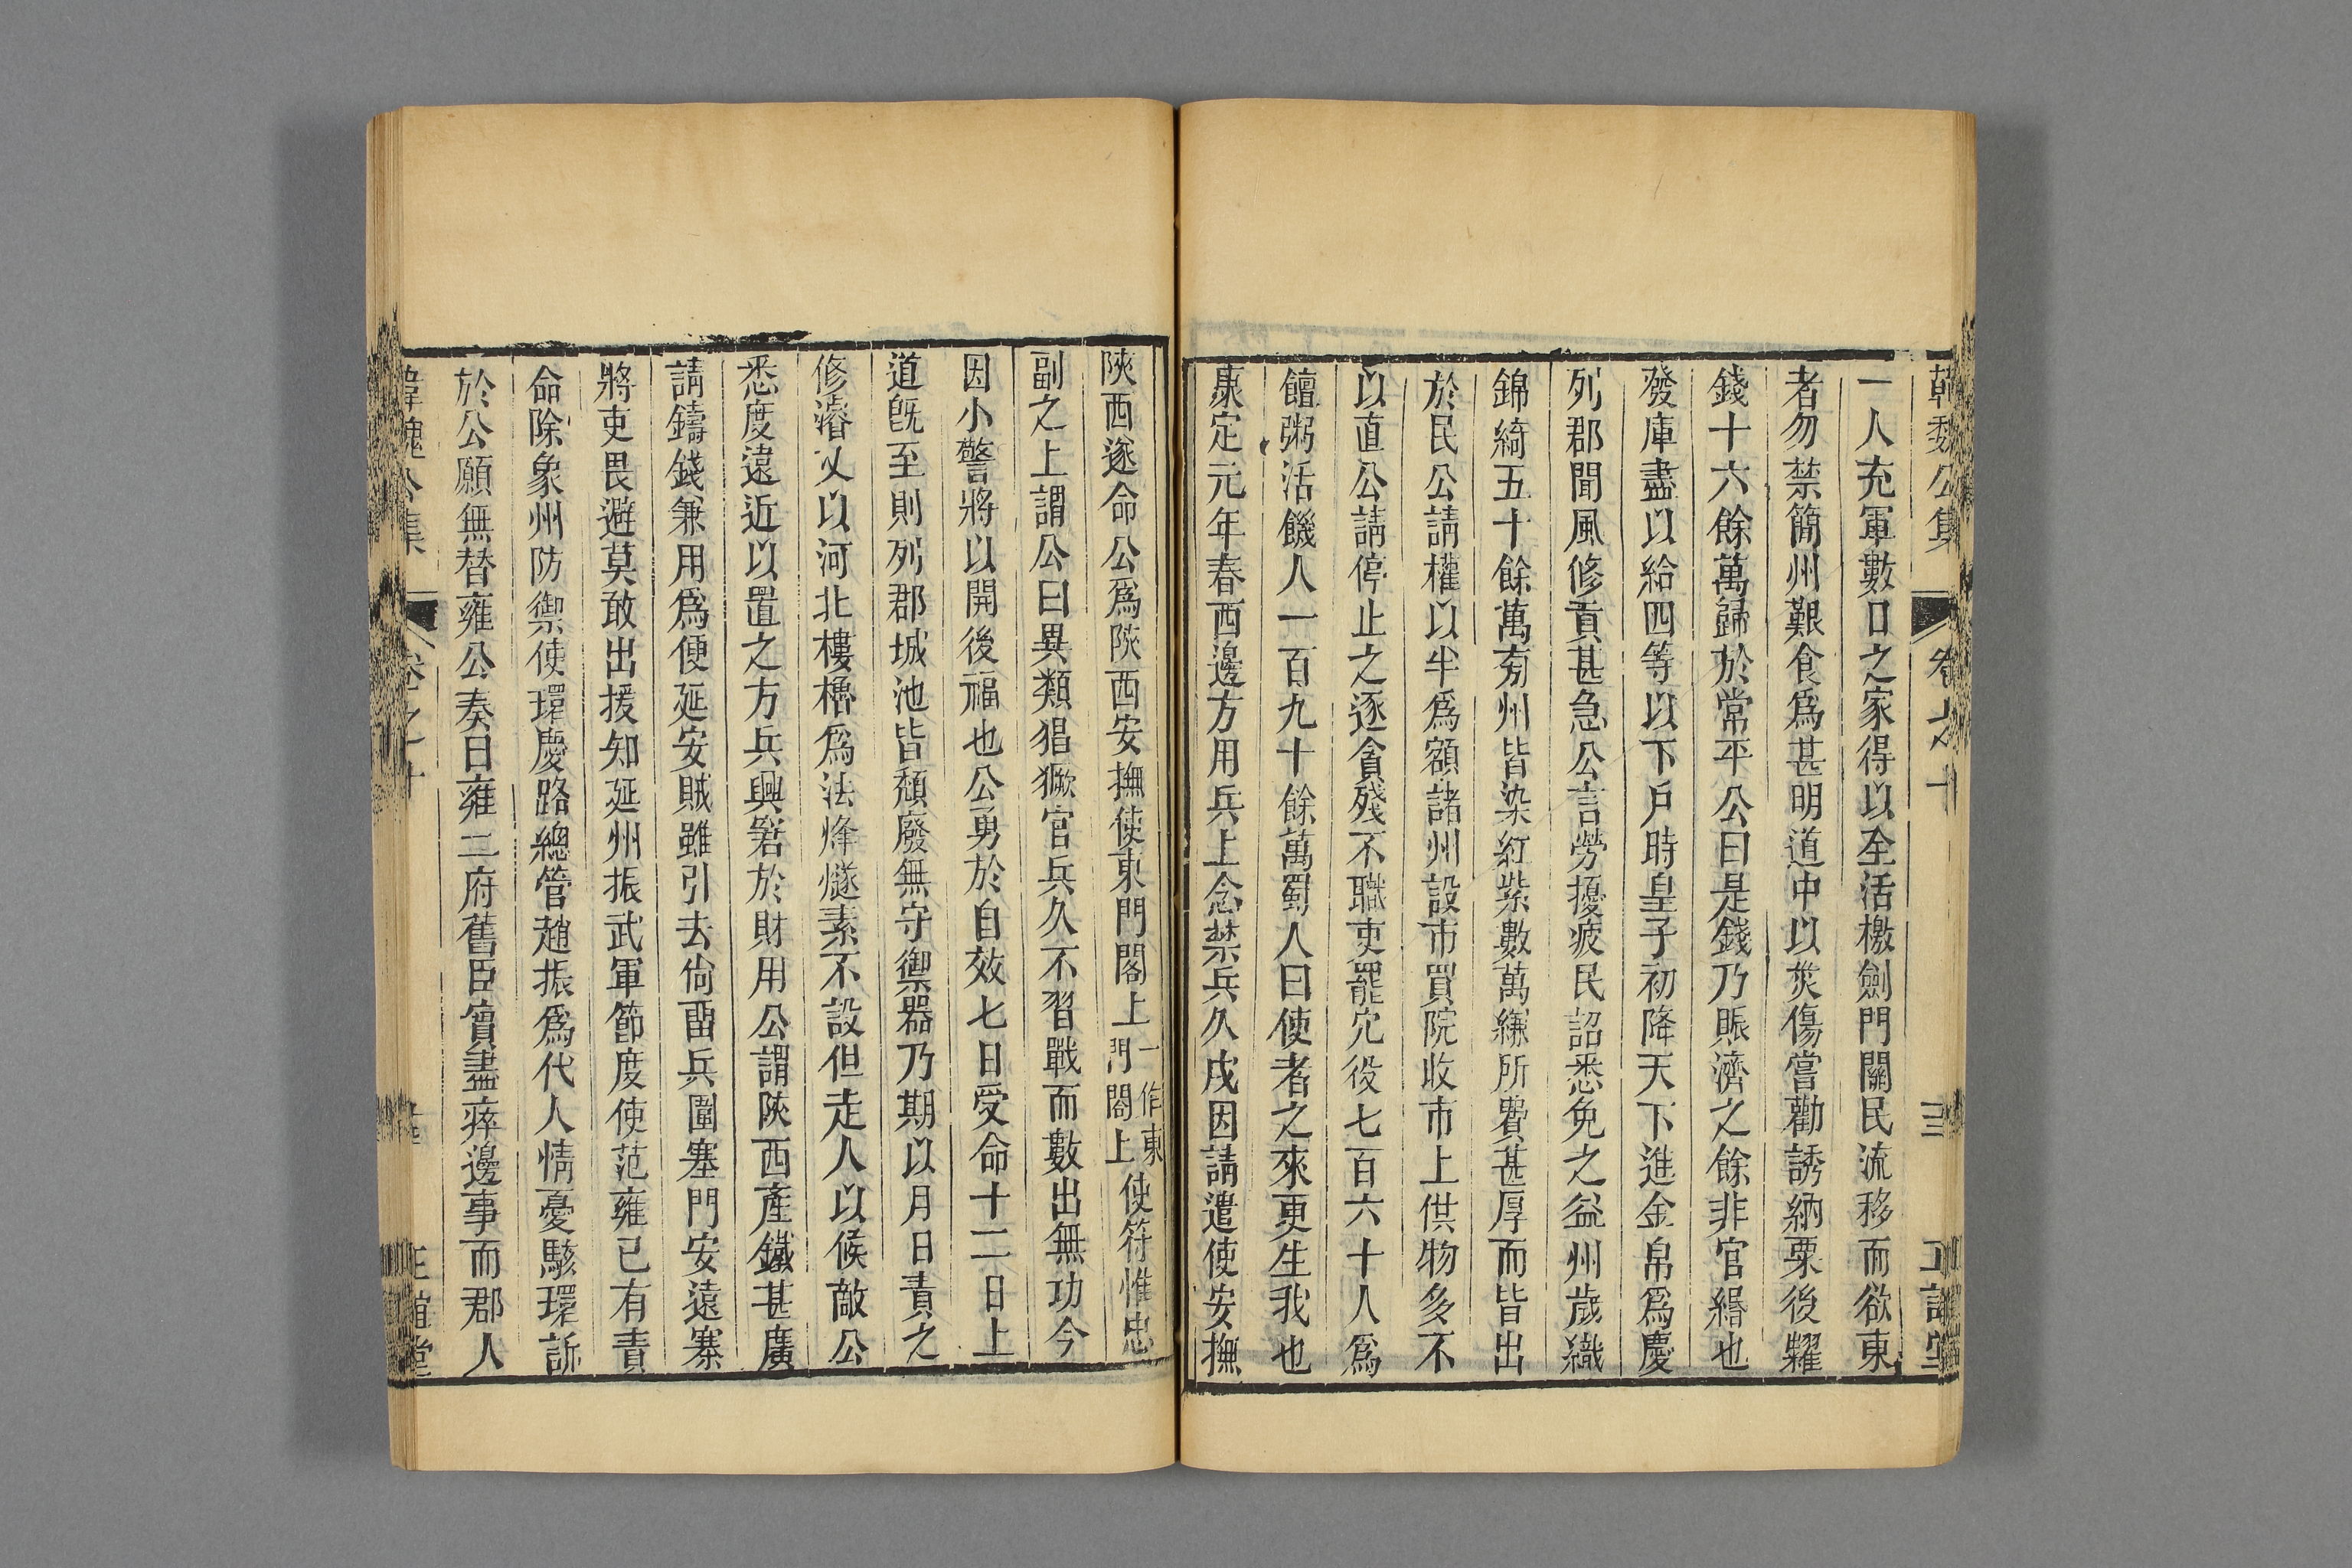 一人充軍數口之家得以全活檄劍門關民流移而欲東
者勿禁簡州艱食爲甚明道中以災傷嘗勸誘納粟後糶
錢十六餘萬歸於常平公曰是錢乃賑濟之餘非官緡也
發庫盡以給四等以下戶時皇子初降天下進金帛爲慶
列郡聞風修貢甚急公言勞擾疲民詔悉免之益州歲織
錦綺五十餘萬旁州皆染紅紫數萬縑所費甚厚而皆出
於民公請權以半爲額諸州設市買院收市上供物多不
以直公請停止之逐貪殘不職吏罷冗役七百六十人爲
饘粥活饑人一百九十餘萬蜀人曰使者之來更生我也
康定元年春西邊方用兵上念禁兵久戍因請遣使安撫
陝西遂命公爲陝西安撫使東門閣上
一作東
門閣上
使符惟忠
副之上謂公曰異類猖獗官兵久不習戰而數出無功今
因小警將以開後福也公勇於自效七日受命十二日上
道旣至則列郡城池皆頹廢無守禦器乃期以月日責之
修濬又以河北樓櫓爲法烽燧素不設但走人以候敵公
悉度遠近以置之方兵興窘於財用公謂陝西產鐵甚廣
請鑄錢兼用爲便延安賊雖引去尙畱兵圍塞門安遠寨
將吏畏避莫敢出援知延州振武軍節度使范雍已有責
命除象州防禦使環慶路總管趙振爲代人情憂駭環訴
於公願無替雍公奏曰雍二府舊臣實盡瘁邊事而郡人